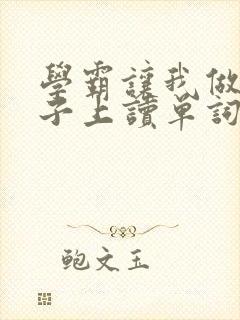 學霸讓我做
子上讀單詞
鲍文玉